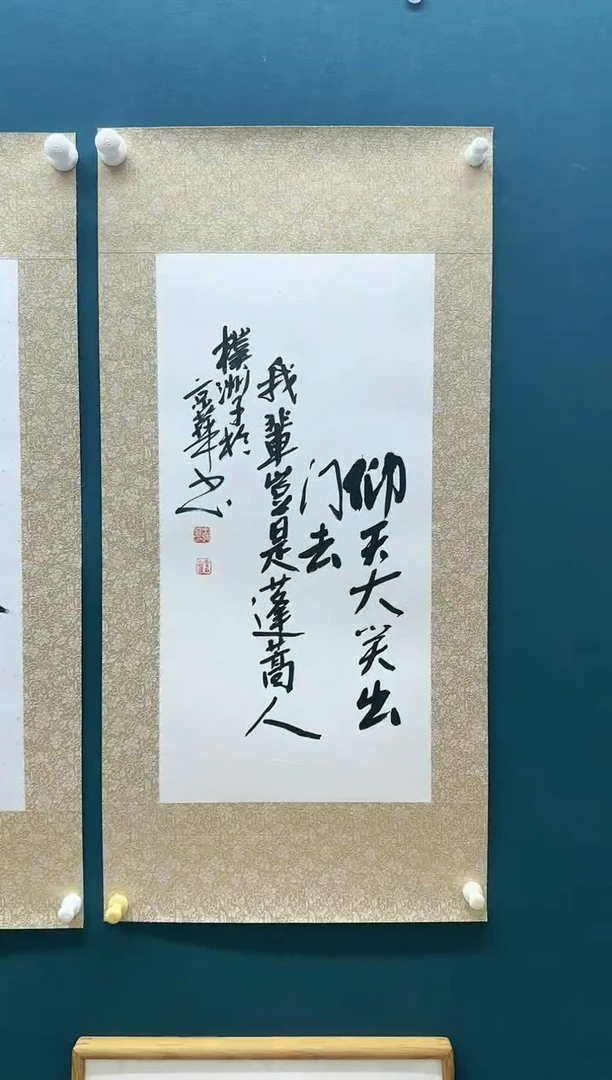 仰天大笑出
门去
我輩豈是蓬蒿人
樸洲子於
京華书